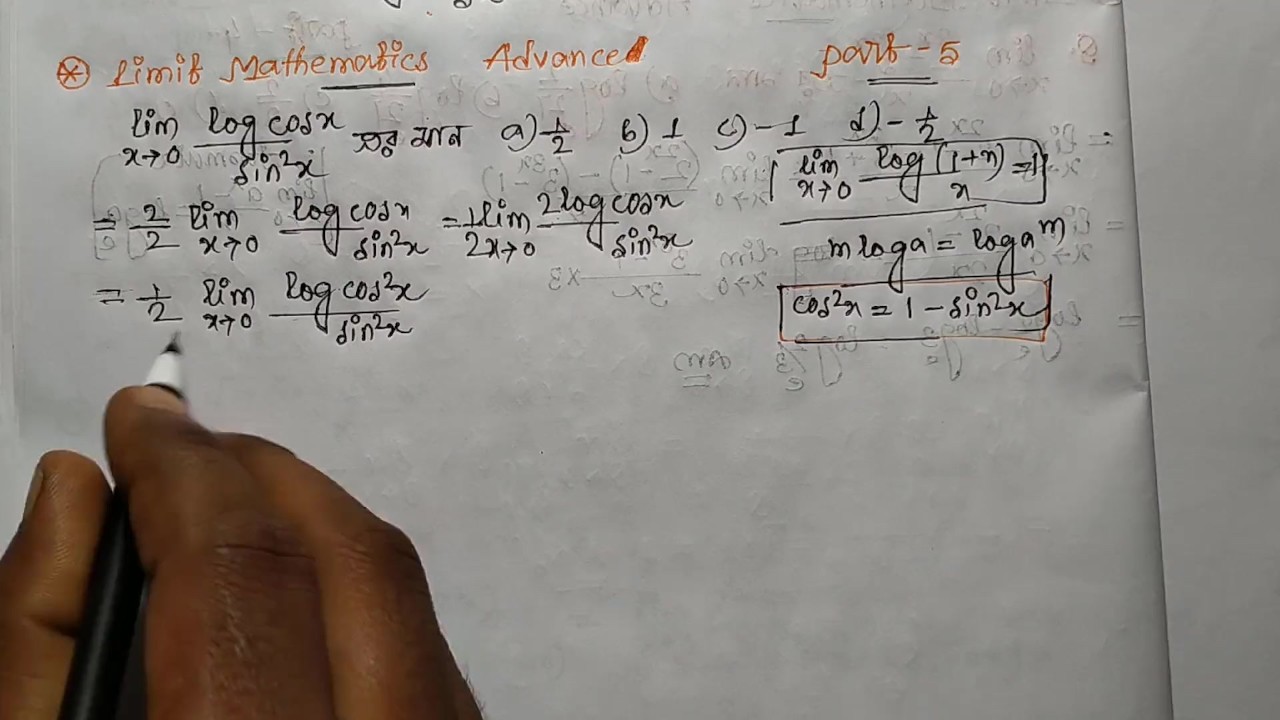 ⊛ Limit Mathematics Advanced part-5
lim x→0 log cosx / sin²x এর মান a) 1/2 b) 1 c) -1 d) -1/2
lim x→0 log(1+x) / x = 1
= 2/2 lim x→0 log cosx / sin²x = 1/2 lim x→0 2log cosx / sin²x
m log a = log a^m
= 1/2 lim x→0 log cos²x / sin²x
cos²x = 1 - sin²x